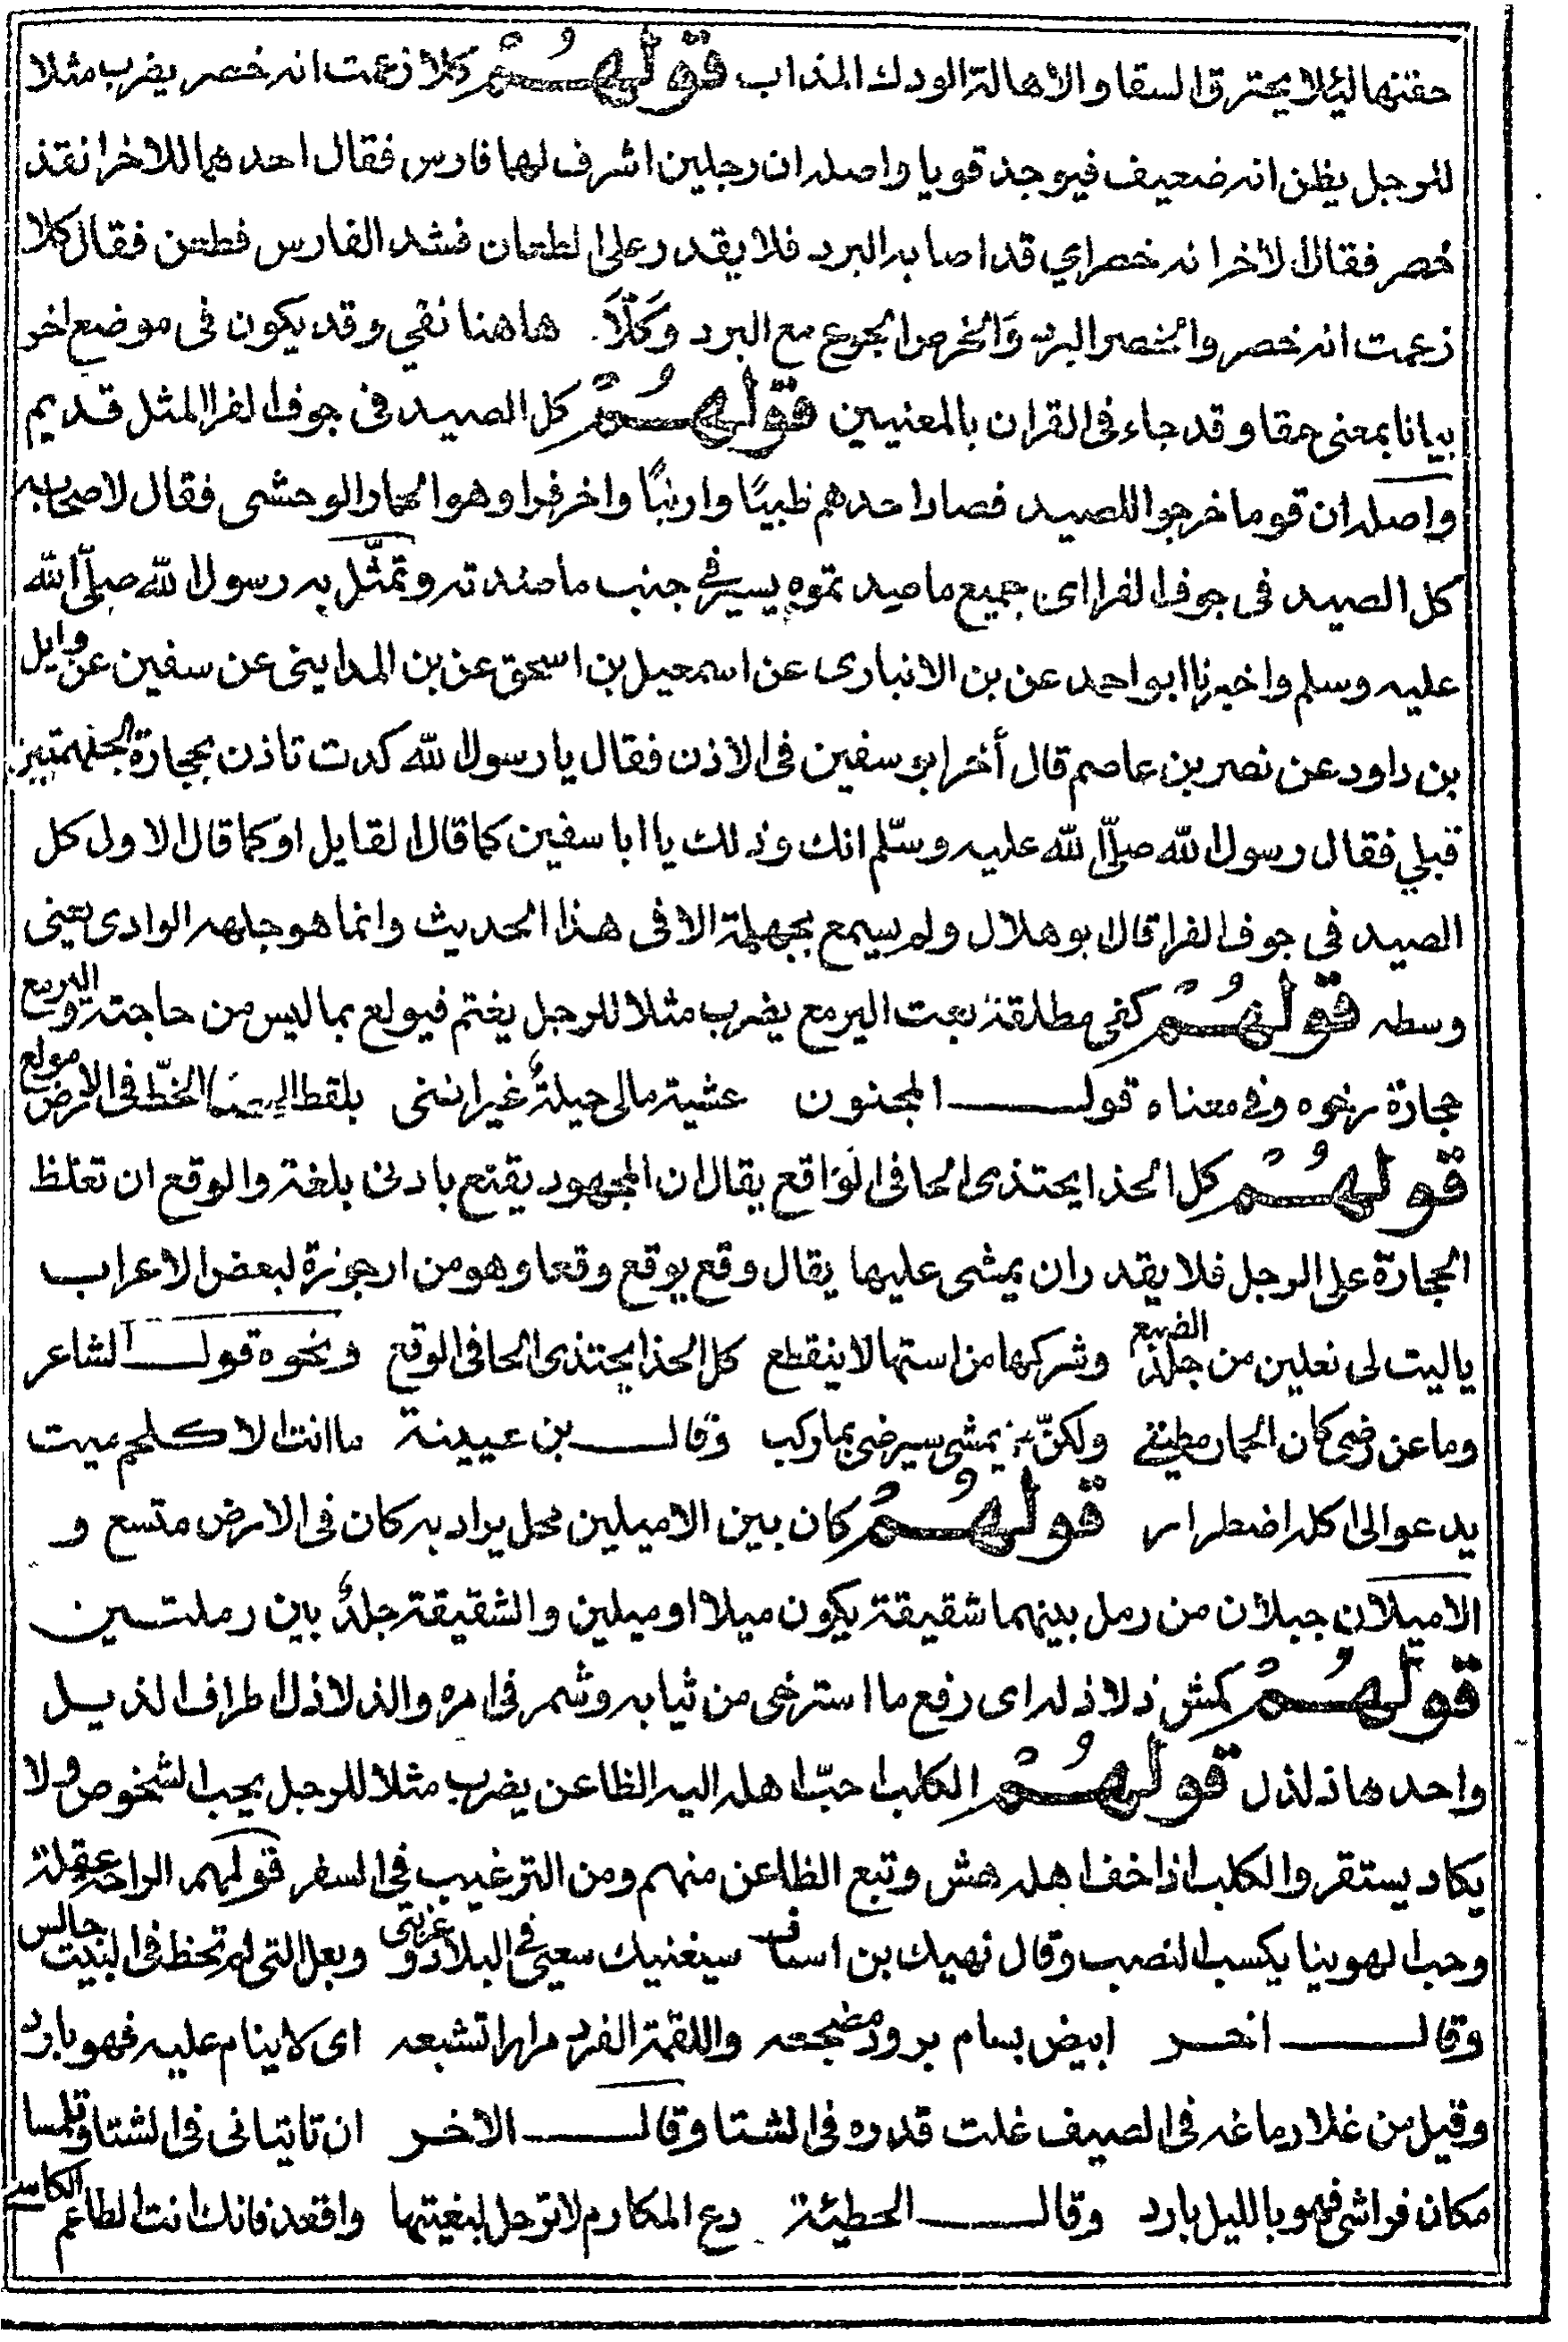 حقنها لئلا يحترق السقا والاهالة الودك المذاب قولهم كلا زعمت انه خصر يضرب مثلا
للرجل يظن انه ضعيف فيوجد قويا واصله ان رجلين اشرف لهما فارس فقال احدهما للاخر انقذ
خصر فقال الاخر انه خصر اي قد اصابه البرد فلا يقدر على الطعان فشد الفارس فطعن فقال كلا
زعمت انه خصر والخصر البرد والخرص الجوع مع البرد وكلا هاهنا نفي وقد يكون فى موضع اخر
بيانا بمعنى حقا وقد جاء فى القران بالمعنيين قولهم كل الصيد فى جوف الفرا المثل قديم
واصله ان قوما خرجوا للصيد فصاد احدهم ظبيًا وارنبًا واخر فرا وهو الحمار الوحشى فقال لاصحابه
كل الصيد فى جوف الفرا اى جميع ما صيد تموه يسير فى جنب ما صدته وتمثّل به رسول الله صلّى الله
عليه وسلم واخبرنا ابو احمد عن بن الانبارى عن اسمعيل بن اسحق عن بن المدايني عن سفين عن وايل
بن داود عن نصر بن عاصم قال أخر ابو سفين فى الاذن فقال يا رسول الله كدت تاذن بحجارة الجلهمتين
قبلي فقال رسول الله صلّى الله عليه وسلّم انك وذلك يا ابا سفين كما قال القايل او كما قال الاول كل
الصيد فى جوف الفرا قال ابو هلال ولم يسمع بجهلمة الا فى هذا الحديث وانما هو جلهه الوادى يعنى
وسطه قولهم كفى مطلقة تعت اليرمع يضرب مثلا للرجل يغتم فيولع بما ليس من حاجته واليرمع
حجارة رخوه وفى معناه قول المجنون عشية مالى حيلةٌ غير اننى بلقط الحصا والخطّ فى الارض مولع
قولهم كل الحذا يحتذى الحافى الوَاقع يقال ان المجهود يقنع بادنى بلغة والوقع ان تغلظ
الحجارة على الرجل فلا يقدر ان يمشى عليها يقال وقع يوقع وقعا وهو من ارجوزة لبعض الاعراب
يا ليت لى نعلين من جلد الضبع وشركها من استها لا ينقطع كل الحذا يحتذى الحافى الوقع ونحوه قول الشاعر
وما عن رضى كان الحمار مطيتى ولكنّ من يمشى سيرضى بما ركب وقال بن عيينة ما انت الا كلحم ميت
يدعو الى اكله اضطرار قولهم كان بين الاميلين محل يراد به كان فى الارض متسع و
الاميلان جبلان من رمل بينهما شقيقة يكون ميلا او ميلين والشقيقة جلدٌ بين رملتين
قولهم كمش ذلاذله اى رفع ما استرخى من ثيابه وشمر فى امره والذلاذل اطراف الذيل
واحدها ذلذل قولهم الكلب احبّ اهله اليه الظاعن يضرب مثلا للرجل يحب الشخوص ولا
يكاد يستقر والكلب اذا خف اهله هش وتبع الظاعن منهم ومن الترغيب فى السفر قولهم الراحة عقلة
وحب الهوينا يكسب النصب وقال نهيك بن اساف سيغنيك سعيى فى البلاد وغربتى وبعل التى لم تحظ فى البيت جالس
وقال اخر ابيض بسام برود مضجعه واللقمة الفرد مرارا تشبعه اى لا ينام عليه فهو بارد
وقيل من غلا دماغه فى الصيف غلت قدره فى الشتا وقال الاخر ان تاتيانى فى الشتا وتلمسا
مكان فراشى فهو بالليل بارد وقال الحطيئة دع المكارم لا ترحل لبغيتها واقعد فانك انت الطاعم الكاسى